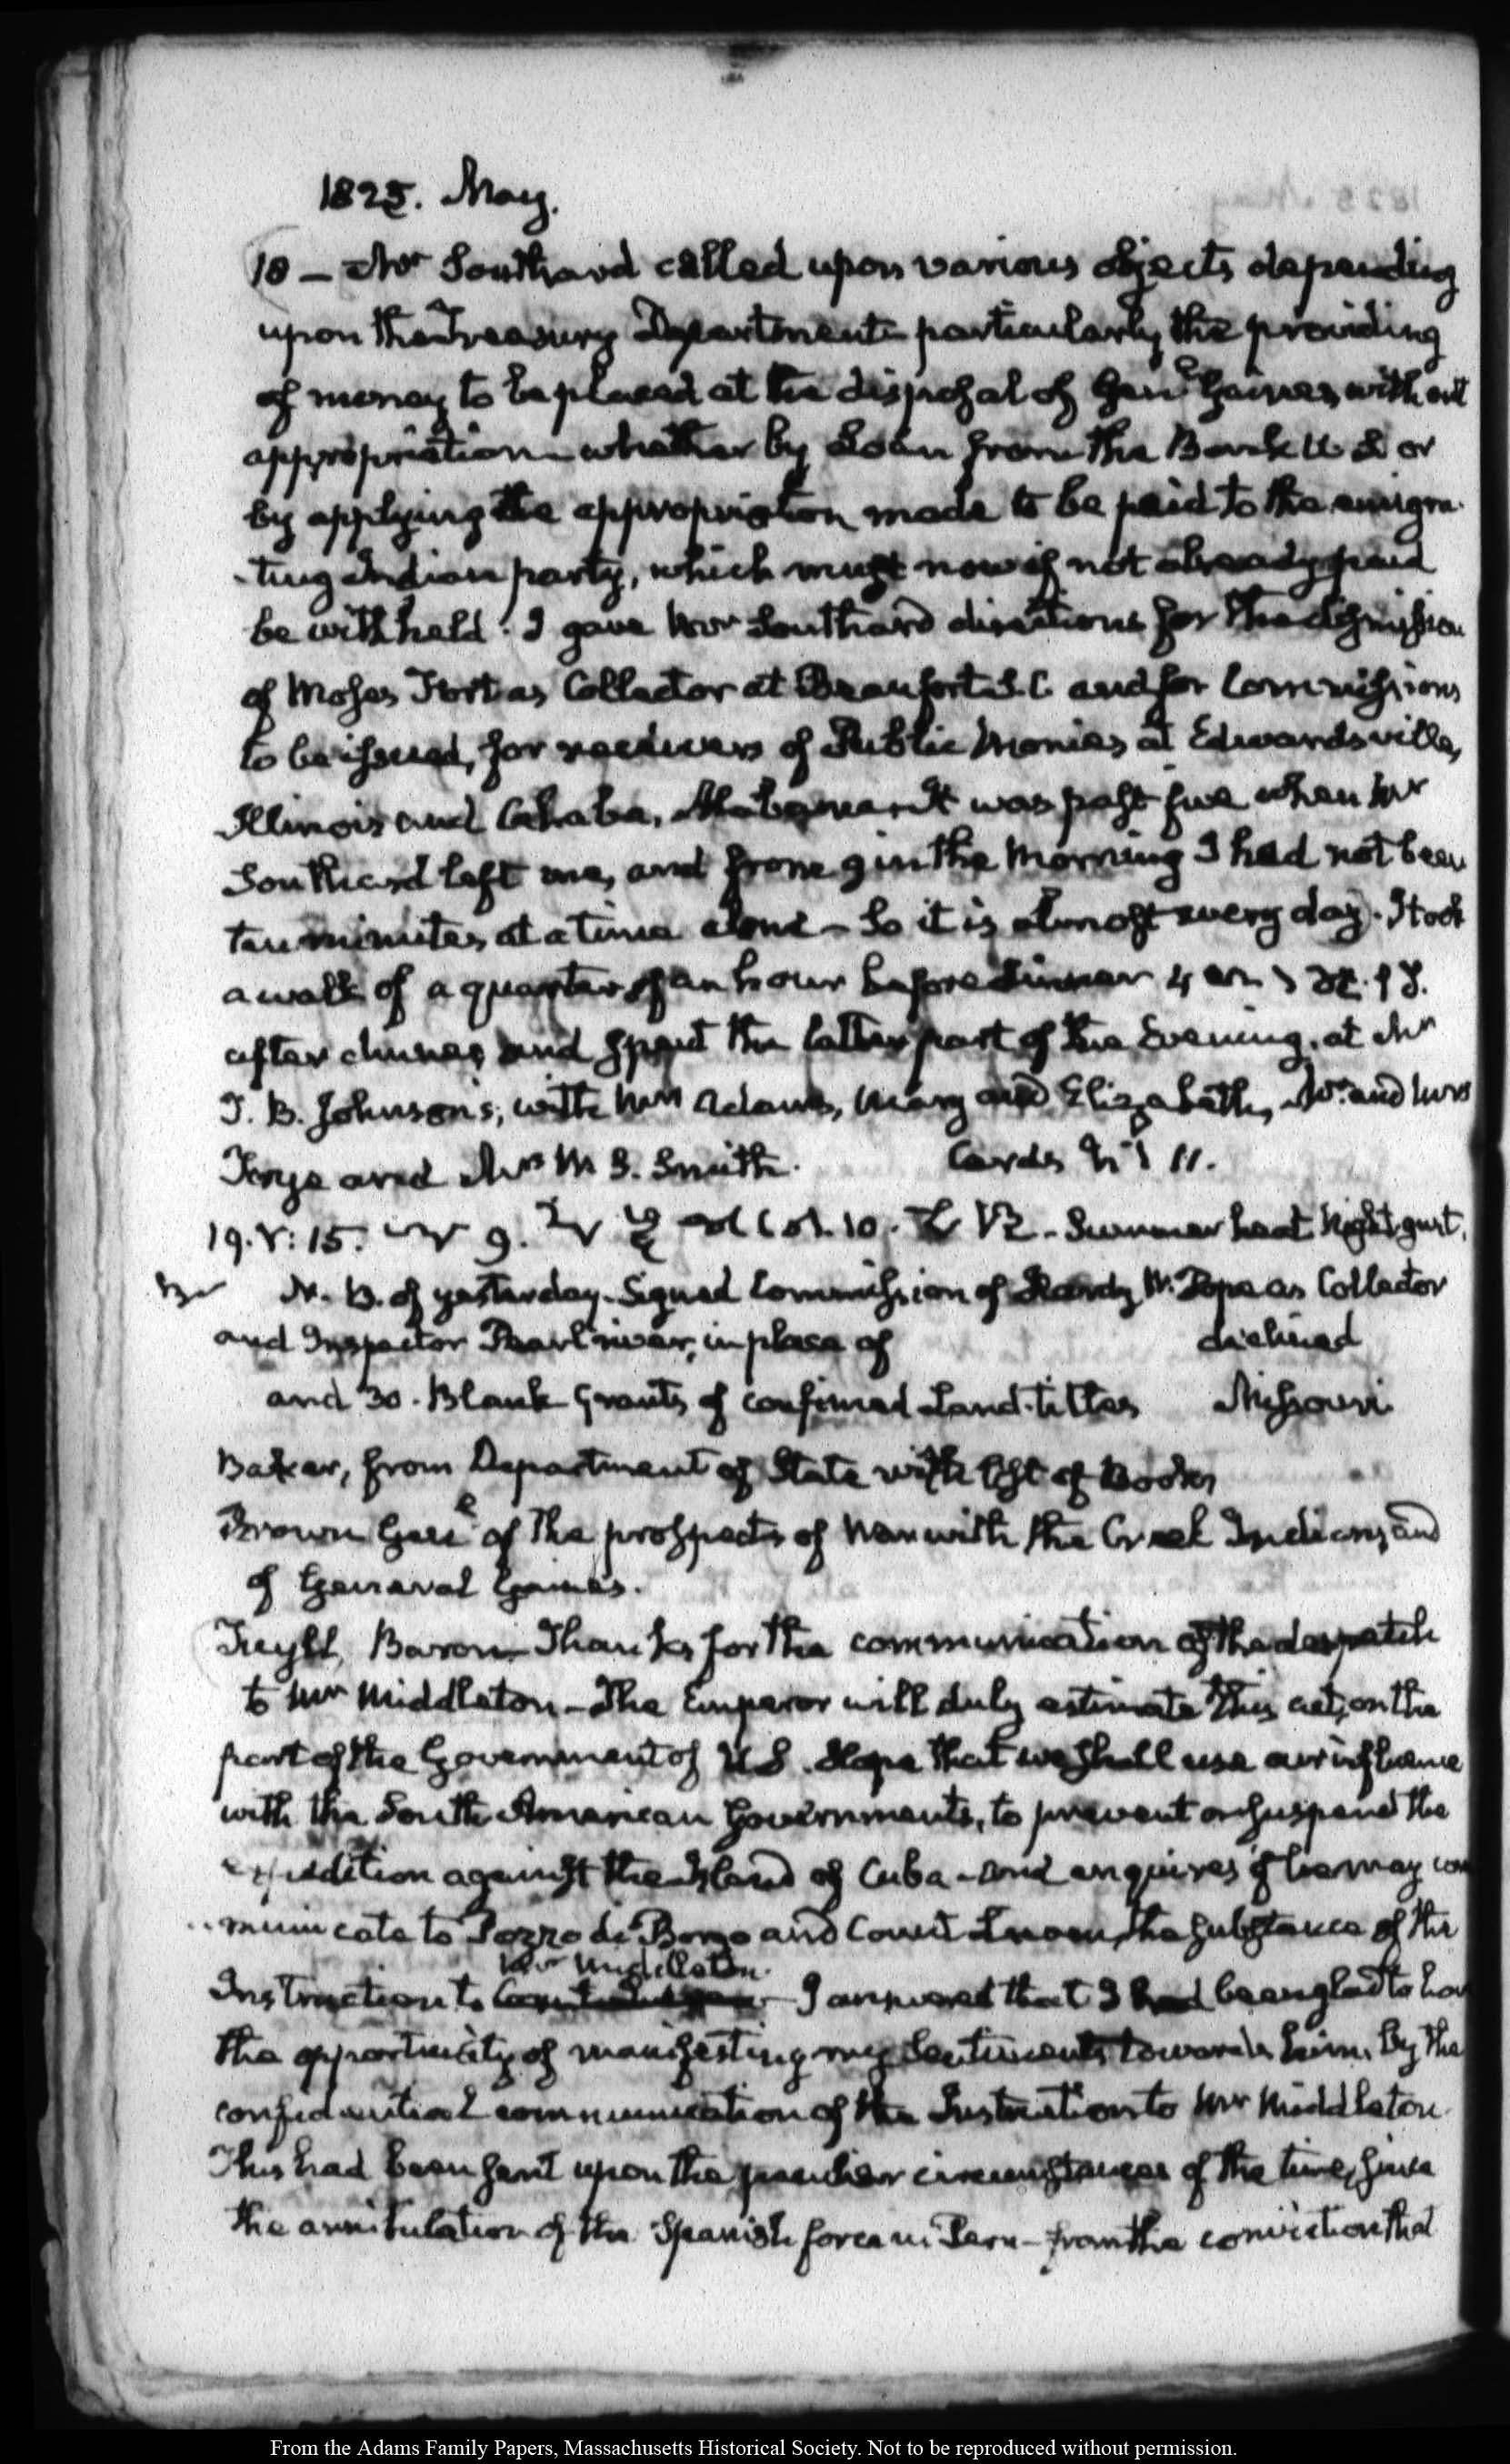 1825. May.
18 – Mr Southard called upon various objects depending
upon the Treasury Department particularly the providing
of money to be placed at the disposal of Genl Gaines, without
appropriation – whether by Loan from the Bank U.S. or
by applying the appropriation made to be paid to the emigra-
-ting Indian party, which must now if not already paid
be withheld. I gave Mr Southard directions for the dismission
of Moses Fort as Collector at Beaufort S.C. and for Commissions
to be issued, for receivers of Public Monies at Edwardsville,
Illinois and Cahaba, Alabama. It was past five when Mr
Southard left me, and from 9 in the Morning I had not been
ten minutes at a time alone – So it is almost every day. I took
a walk of a quarter of an hour before dinner
after dinner, and spent the latter part of the Evening, at Mr
J. B. Johnson's, with Mrs Adams, Mary and Elizabeth, Mr and Mrs
Frye and Mrs M B. Smith. Cards 11.
19. V: 15. 9. 10. Summer heat Night gust.
N. B. of yesterday. Signed Commission of Handy W. Pope as Collector
and Inspector Pearl river, in place of declined
and 30. Blank Grants of confirmed Land-titles Missouri
Baker, from Department of State with list of Books
Brown Genl of the prospects of War with the Creek Indians, and
of General Gaines.
Tuyll, Baron – Thanks for the communication of the despatch
to Mr Middleton – The Emperor will duly estimate this act, on the
part of the Government of U.S. Hope that we shall use our influence
with the South American Governments, to prevent or suspend the
expedition against the Island of Cuba – and enquires if he may com
-municate to Pozzo di Borgo and Count Lieven, the substance of the
Mr Middleton.
Instruction to I answered that I had been glad to have
the opportunity of manifesting my Sentiments towards him, by the
confidential communication of the Instruction to Mr Middleton.
This had been sent upon the peculiar circumstances of the time, since
the annihilation of the Spanish force in Peru – from the conviction that
From the Adams Family Papers, Massachusetts Historical Society. Not to be reproduced without permission.